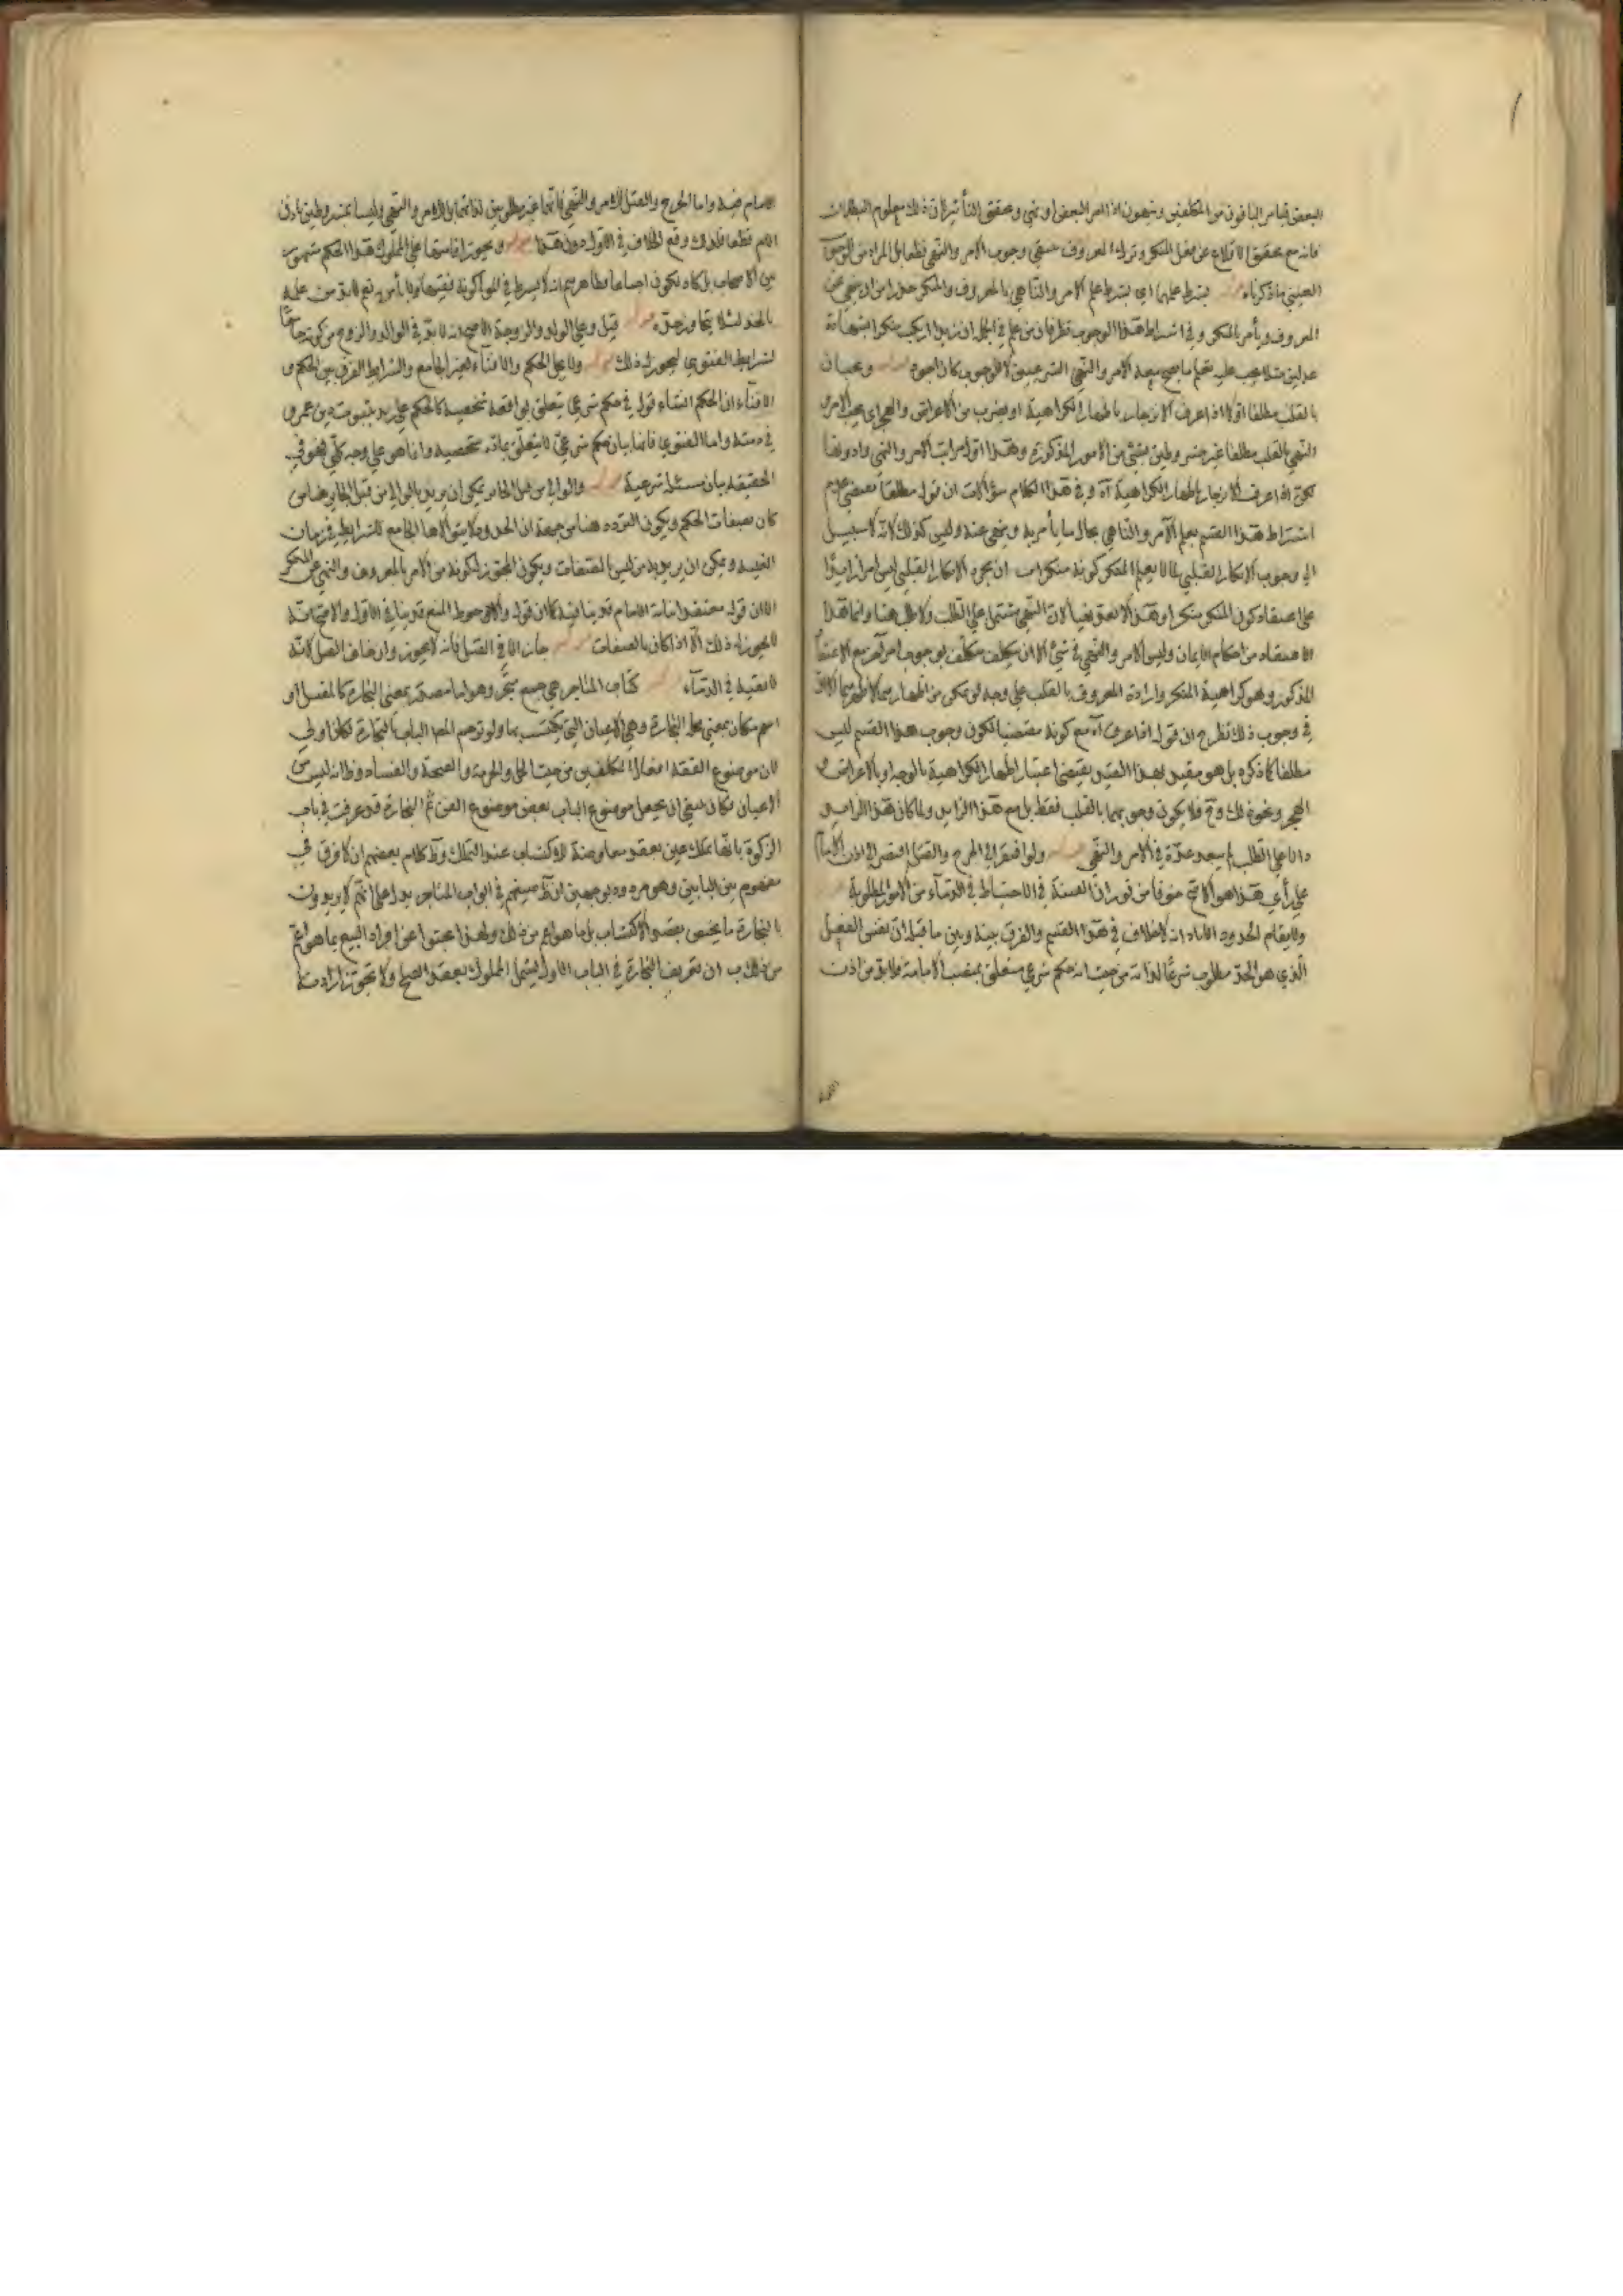 البعض قيام الباقون من المكلفين وينهون اذا امر البعض او نهى وتحقق التأثير لان ذلك معلوم البطلان
فانه مع تحقق الاقلاع عن فعل المنكر وترك المعروف ينتفي وجوب الامر والنهي قطعا بل المراد من الوجوب
العيني ما ذكرناه قوله يشترط علمهما اي يشترط علم الآمر والناهي بالمعروف والمنكر حذرا من ان ينهى عن
المعروف ويأمر بالمنكر وفي اشتراط هذا الوجوب نظر فان من علم في الجملة ان زيدا ارتكب منكرا بشهادة
عدلين مثلا يجب عليه تعلم ما يصح معه الامر والنهي الشرعيين كالوجوب كان اجود قوله ويجبان
بالقلب مطلقا اولا اذا عرف الانزجار باظهار الكراهية او بضرب من الاعراض والهجر اي يجب الامر و
النهي بالقلب مطلقا غير مشروطين بشيء من الامور المذكورة وهذا اول مراتب الامر والنهي وادونها
اذا عرف الانزجار باظهار الكراهية آه وفي هذا الكلام سؤالات ان قوله مطلقا يقتضي عدم
اشتراط هذا القسم بعلم الآمر والناهي بحال ما يأمر به وينهى عنه وليس كذلك لانه لا سبيل
الى وجوب الانكار القلبي لما لا يعلم المنكر كونه منكرا ب ان مجرد الانكار القلبي ليس امرا زايدا
على اعتقاد كون المنكر منكرا وهذا لا يعد نهيا لان النهي يشتمل على الطلب ولا طلب هنا وانما هذا
الاعتقاد من احكام الايمان وليس الامر والنهي في شيء الا ان يتكلف متكلف بوجوب امر آخر مع الاعتقاد
المذكور وهو كراهية المنكر وارادة المعروف بالقلب على وجه لو تمكن من اظهارهما لاظهرهما
في وجوب ذلك نظر ج ان قوله اذا عرف آه مع كونه مقتضيا لكون وجوب هذا القسم ليس
مطلقا كما ذكره بل هو مقيد بهذا القيد يقتضي اعتبار اظهار الكراهية بالوجه او بالاعراض و
الهجر ونحو ذلك وح فلا يكون وجوبهما بالقلب فقط بل مع هذا الزايد ولما كان هذا الزايد
دالا على الطلب لم يبعد عده في الامر والنهي قوله ولو افتقر الى الجرح والقتل افتقر الى اذن الامام
على رأي هذا هو الاصح خوفا من ثوران الفتنة الاحتياط في الدماء من الامور المطلوبة
ولا يقام الحدود الا باذنه لا خلاف في هذا القسم والفرق بينه وبين ما قبله ان نفس الفعل
الذي هو الحد مطلوب شرعا لذاته من حيث انه حكم شرعي متعلق بمنصب الامامة فلا بد من اذن
الامام فيه واما الجرح والقتل للامر والنهي فانهما غير مطلوبين لذاتهما بل للامر والنهي وليسا بمشروطين باذن
الامام قطعا فلذلك وقع الخلاف في الاول دون هذا قوله ويجوز اقامتها على المملوك هذا الحكم مشهور
بين الاصحاب بل كاد يكون اجماعا وظاهرهم انه لا يشترط في المولى كونه فقيها نعم لا بد من علمه
بالحد لئلا يتجاوز حده قوله قيل وعلى الولد والزوجة الاصح انه لا بد في الوالد والزوج من كونه جامعا
لشرايط الفتوى ليجوز له ذلك قوله ولا يحل الحكم والافتاء لغير الجامع والشرايط الفرق بين الحكم و
الافتاء ان الحكم انشاء قول في حكم شرعي يتعلق بواقعة شخصية كالحكم على زيد بثبوت دين عمرو
في ذمته واما الفتوى فانها بيان حكم شرعي لا يتعلق بمادة شخصية وانما هو على وجه كلي فهو في
الحقيقة بيان مسئلة شرعية قوله والوالي من قبل الجائر يمكن ان يريد بالوالي من قبل الجاير هنا من
كان بصفات الحكم ويكون التردد هنا من جهة ان الحدود لا يتولاها الجامع للشرايط في زمان
الغيبة ويمكن ان يريد به من ليس بالصفات ويكون المجوز له كونه من الامر بالمعروف والنهي عن المنكر
الا ان قوله معتقدا نيابة الامام قد ينافيه كما ان قوله والاحوط المنع قد ينافي الاول والاصح انه
لا يجوز له ذلك الا اذا كان بالصفات قوله جاز الا في القتل فانه لا يجوز وان خاف القتل لانه
لا تقية في الدماء قوله كتاب المتاجر هي جمع متجر وهو اما مصدر بمعنى التجارة كالمقتل او
اسم مكان بمعنى محل التجارة وهي الاعيان التي يكتسب بها ولو ترجم المص الباب بالتجارة لكان اولى
لان موضوع الفقه افعال المكلفين من حيث الحل والحرمة والصحة والفساد وظ انه ليس من
الاعيان فكان ينبغي ان يجعل موضوع الباب بعض موضوع الفن ثم التجارة قد عرفت في باب
الزكوة بانها تملك عين بعقد معاوضة للاكتساب عند التملك وظ كلام بعضهم ان لا فرق في
مفهوم بين البابين وهو مردود بوجهين ا ان ظ صنيعهم في ابواب المتاجر يدل على انهم لا يريدون
بالتجارة ما يختص بقصد الاكتساب بل ما هو اعم من ذلك ولهذا بحثوا عن افراد البيع بما هو اعم
من ذلك ب ان تعريف التجارة في الباب الاول يشمل المملوك بعقد الصلح ولا تجوز ارادته